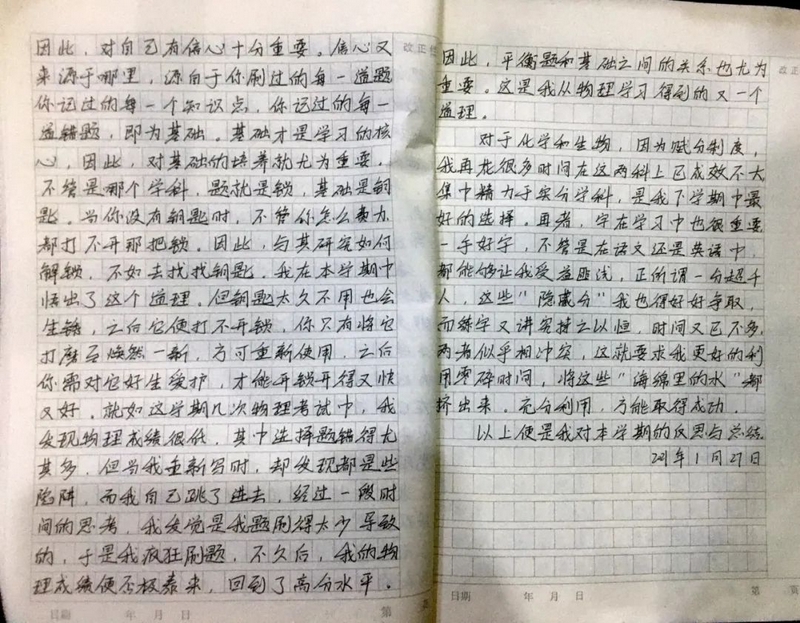 因此，对自己有信心十分重要。信心又
来源于哪里，源自于你刷过的每一道题
你记过的每一个知识点，你记过的每一
道错题，即为基础。基础才是学习的核
心，因此，对基础的培养就尤为重要。
不管是哪个学科，题就是锁，基础是钥
匙。当你没有钥匙时，不管你怎么费力
都打不开那把锁。因此，与其研究如何
解锁，不如去找找钥匙。我在本学期中
悟出了这个道理。但钥匙太久不用也会
生锈，之后它便打不开锁，你只有将它
打磨至焕然一新，方可重新使用，之后
你需对它好生爱护，才能开锁开得又快
又好。就如这学期几次物理考试中，我
发现物理成绩很低，其中选择题错得尤
其多，但当我重新写时，却发现都是些
陷阱，而我自己跳了进去，经过一段时
间的思考，我发觉是我题刷得太少导致
的，于是我疯狂刷题，不久后，我的物
理成绩便否极泰来，回到了高分水平。
日期 年 月 日 第
改正栏
因此，平衡题和基础之间的关系也尤为
重要。这是我从物理学习得到的又一个
道理。
对于化学和生物，因为赋分制度，
我再花很多时间在这两科上已成效不大
集中精力于实分学科，是我下学期中最
好的选择。再者，字在学习中也很重要
一手好字，不管是在语文还是英语中，
都能够让我受益匪浅，正所谓一分超千
人，这些“隐藏分”我也得好好争取，
而练字又讲究持之以恒，时间又已不多，
两者似乎相冲突，这就要求我更好的利
用零碎时间，将这些“海绵里的水”都
挤出来。充分利用，方能取得成功。
以上便是我对本学期的反思与总结
2021年1月27日
日期 年 月 日 第 页